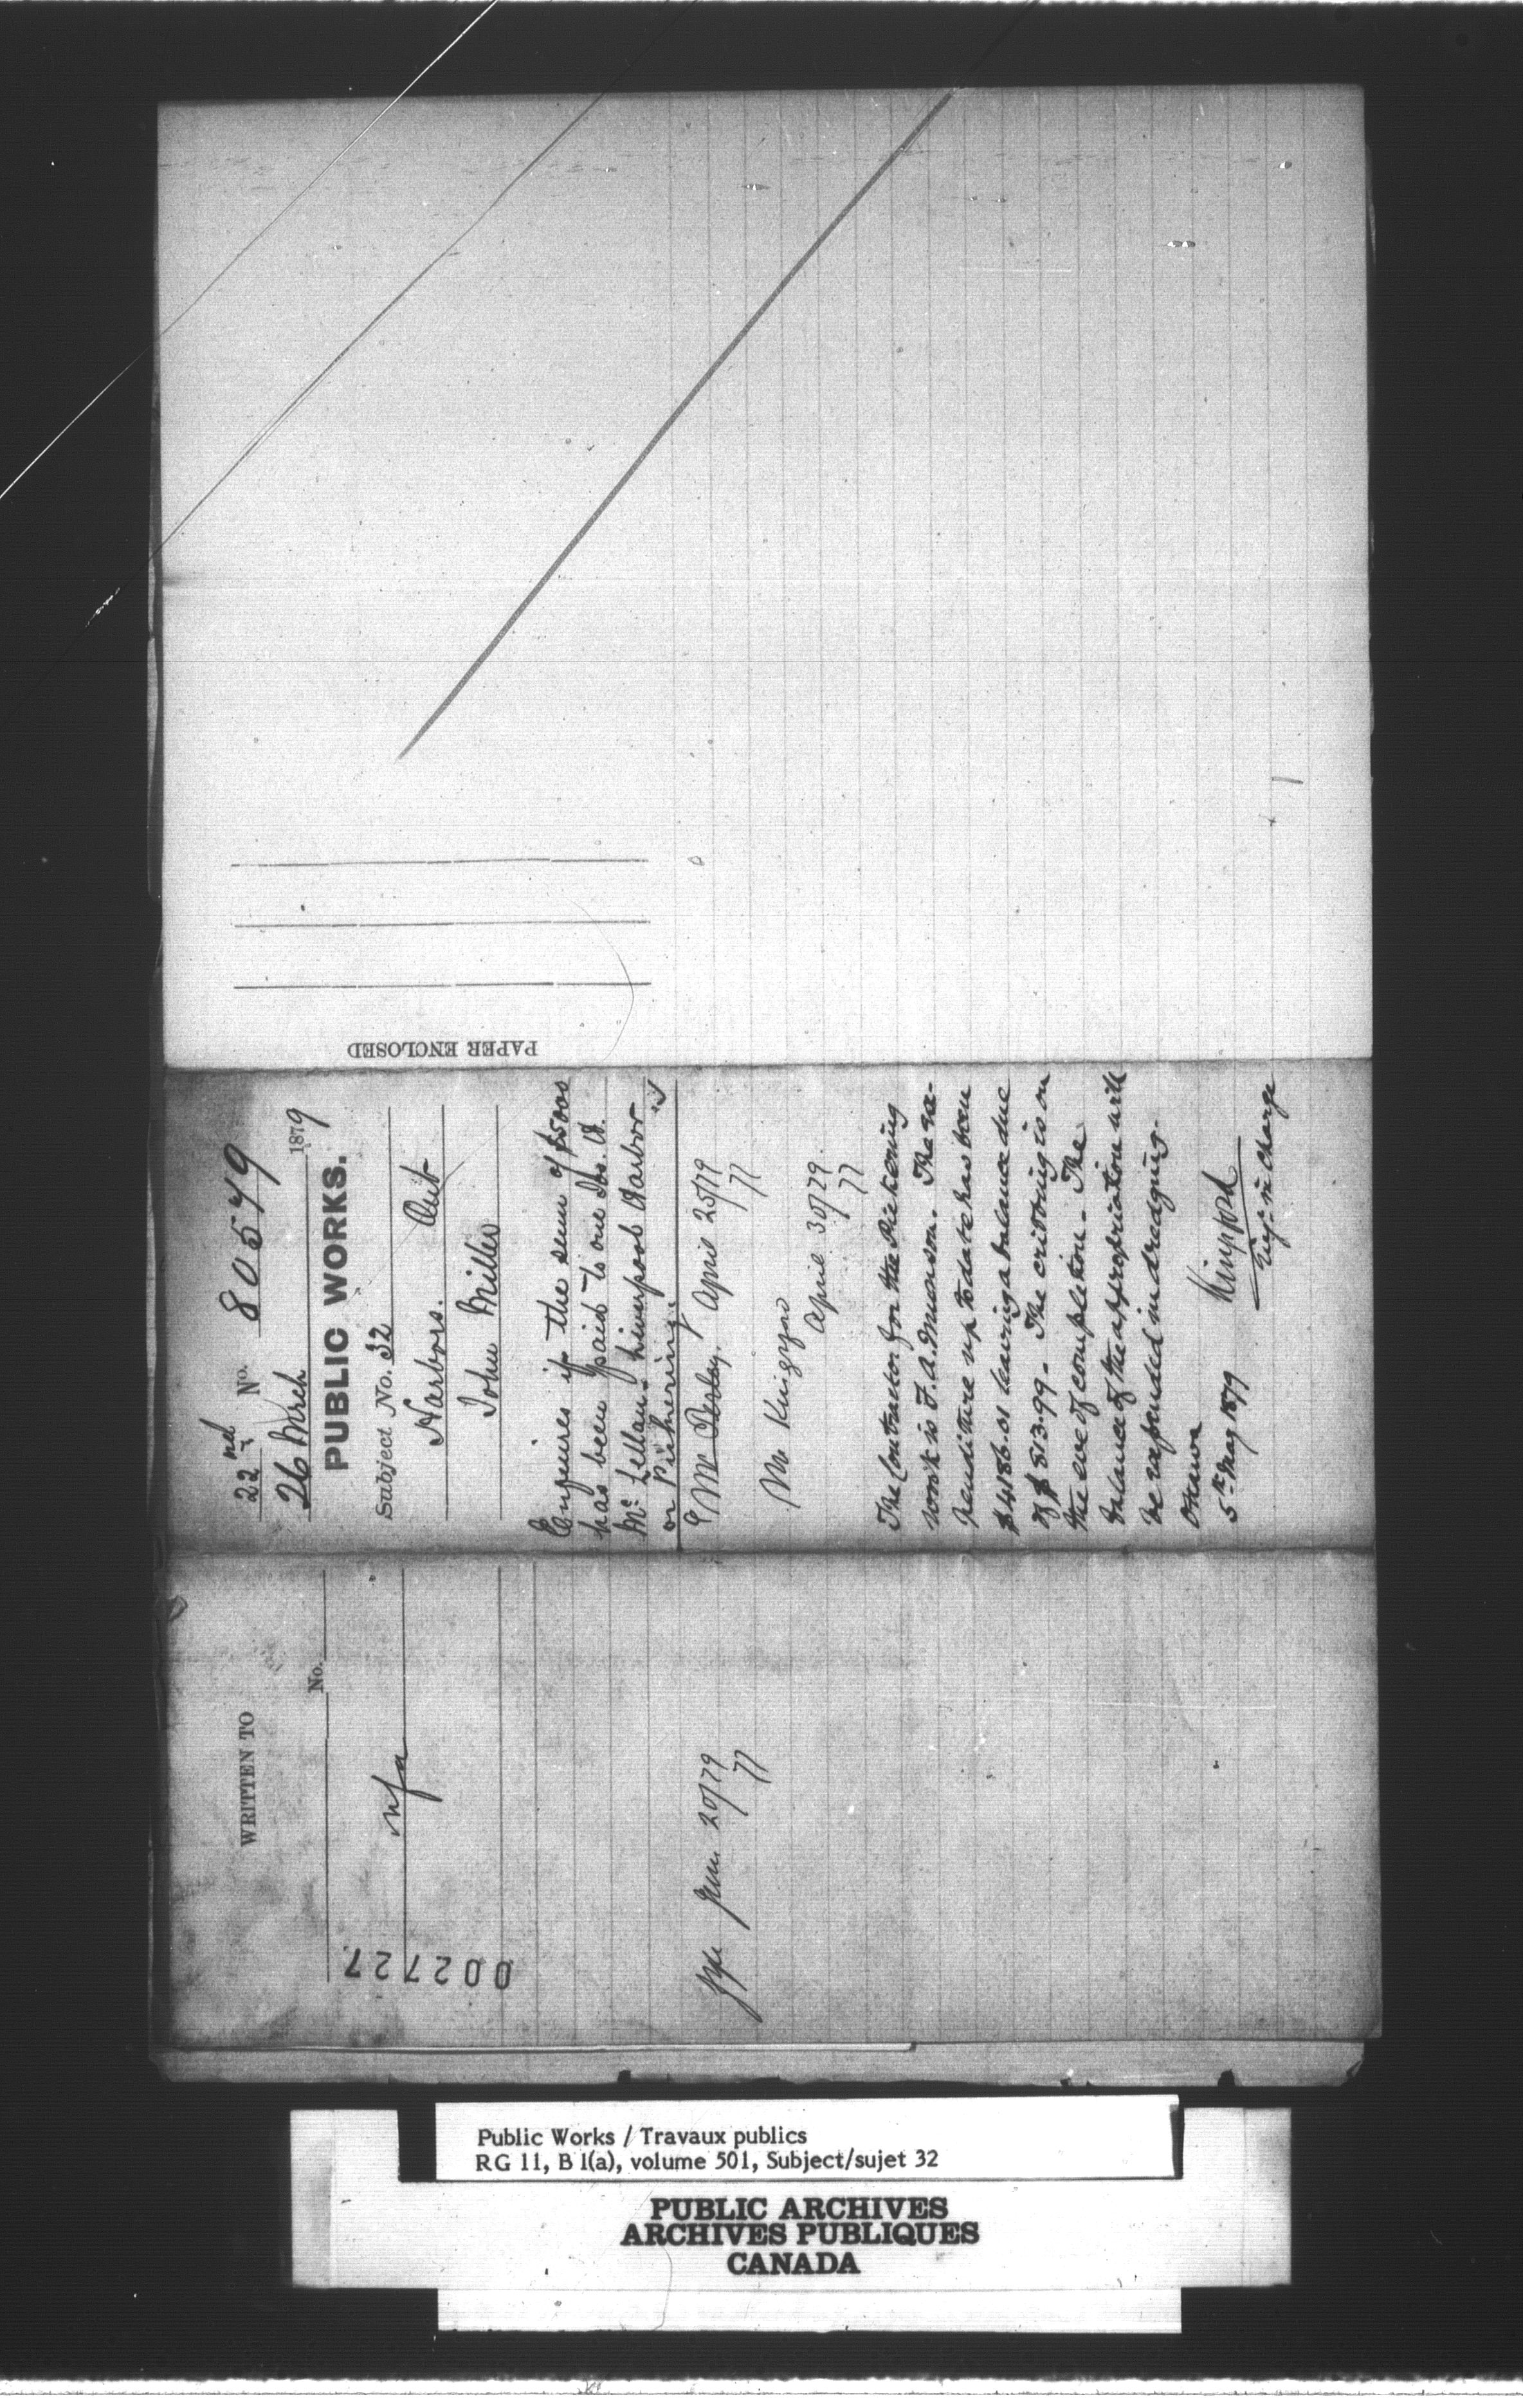 22nd No. 80579
26 Mrch 1879
PUBLIC WORKS.
Subject No. 32
Harbors. Ont
John Miller
Enquires if the sum of $5000
has been paid to one Jos. A.
McLellan. Liverpool Harbor
or Pickering.
Mr Perley. April 25/79
77
Mr Kingsford
April 30/79.
77
The Contractor for the Pickering
work is J. A. Munson. The ex-
penditure up to date has been
$4186.01 leaving a balance due
of $813.99 - The cribbing is on
the eve of completion - The
balance of the appropriation will
be expended in dredging.
Ottawa
5th May 1879
Kingsford
Engr in Charge
PAPER ENCLOSED
WRITTEN TO
No.
nfa
002727
June 20/79
77
Public Works / Travaux publics
RG 11, B 1(a), volume 501, Subject/sujet 32
PUBLIC ARCHIVES
ARCHIVES PUBLIQUES
CANADA